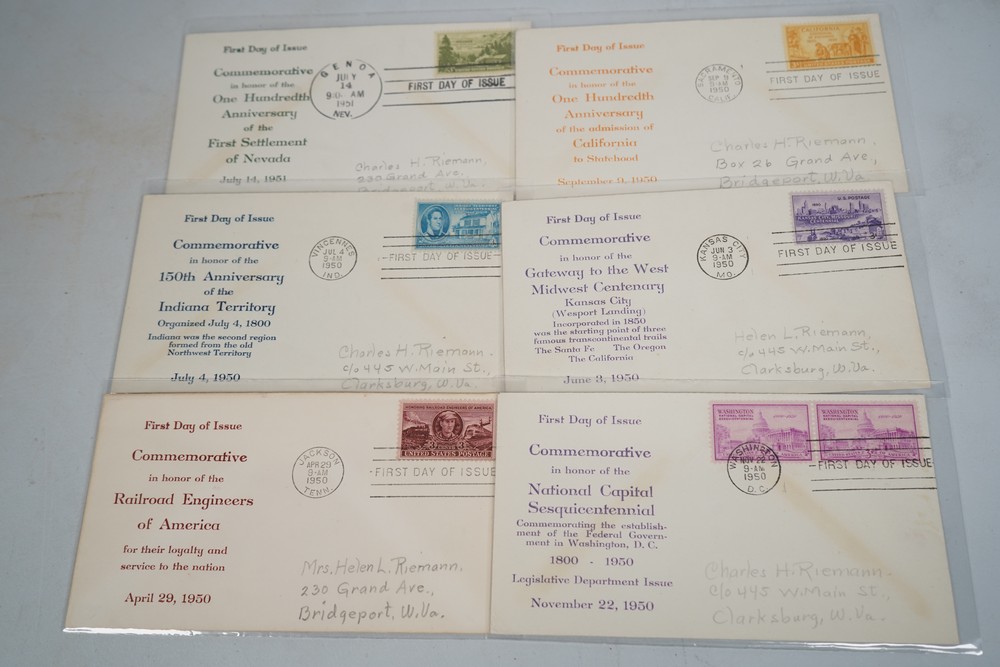 First Day of Issue
Commemorative
in honor of the
One Hundredth
Anniversary
of the
First Settlement
of Nevada
July 14, 1951
GENOA
JULY
14
AM
1951
NEV.
FIRST DAY OF ISSUE
Charles H. Riemann,
230 Grand Ave.
Bridgeport, W.Va.
First Day of Issue
Commemorative
in honor of the
One Hundredth
Anniversary
of the admission of
California
to Statehood
September 9, 1950
CALIFORNIA
SACRAMENTO
SEP 9
9-AM
1950
CALIF.
FIRST DAY OF ISSUE
Charles H. Riemann,
Box 26 Grand Ave,
Bridgeport, W.Va.
First Day of Issue
Commemorative
in honor of the
150th Anniversary
of the
Indiana Territory
Organized July 4, 1800
Indiana was the second region
formed from the old
Northwest Territory
July 4, 1950
VINCENNES
JUL 4
9-AM
1950
IND.
FIRST DAY OF ISSUE
Charles H. Riemann.
c/o 445 W. Main St.,
Clarksburg, W.Va.
First Day of Issue
Commemorative
in honor of the
Gateway to the West
Midwest Centenary
Kansas City
(Wesport Landing)
Incorporated in 1850
was the starting point of three
famous transcontinental trails
The Santa Fe The Oregon
The California
June 3, 1950
U.S. POSTAGE
KANSAS CITY
JUN 3
9-AM
1950
MO.
FIRST DAY OF ISSUE
Helen L. Riemann,
c/o 445 W. Main St.,
Clarksburg, W.Va.
First Day of Issue
Commemorative
in honor of the
Railroad Engineers
of America
for their loyalty and
service to the nation
April 29, 1950
HONORING RAILROAD ENGINEERS OF AMERICA
UNITED STATES POSTAGE
JACKSON
APR 29
9-AM
1950
TENN.
FIRST DAY OF ISSUE
Mrs. Helen L. Riemann,
230 Grand Ave.,
Bridgeport, W.Va.
First Day of Issue
Commemorative
in honor of the
National Capital
Sesquicentennial
Commemorating the establish-
ment of the Federal Govern-
ment in Washington, D. C.
1800 - 1950
Legislative Department Issue
November 22, 1950
WASHINGTON
NATIONAL CAPITAL
SESQUICENTENNIAL
WASHINGTON
NATIONAL CAPITAL
SESQUICENTENNIAL
WASHINGTON
NOV 22
9-AM
1950
D.C.
FIRST DAY OF ISSUE
Charles H. Riemann.
c/o 445 W. Main St.,
Clarksburg, W.Va.